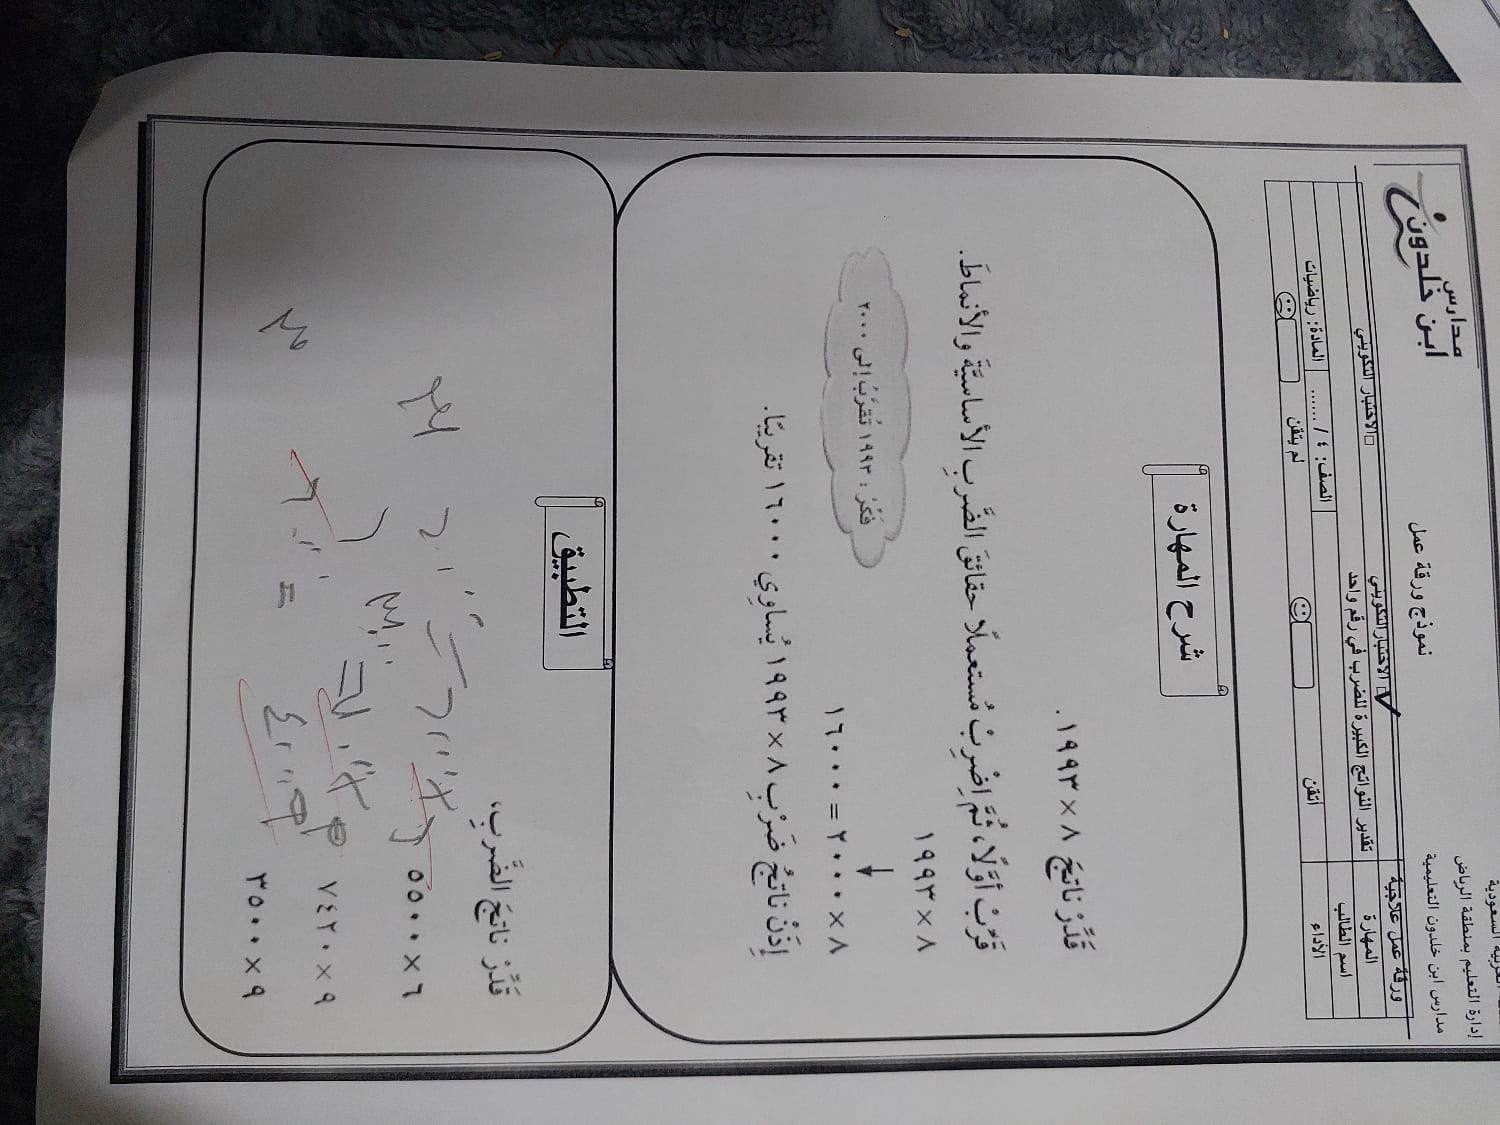 العربية السعودية
إدارة التعليم بمنطقة الرياض
مدارس ابن خلدون التعليمية
نموذج ورقة عمل
مدارس
ابن خلدون
ورقة عمل علاجية
الاختبار التكويني
الاختبار التكويني
المهارة
تقدير النواتج الكبيرة للضرب في رقم واحد
اسم الطالب
الصف: ٤ / ........
المادة: رياضيات
الأداء
اتقن
لم يتقن
شرح المهارة
قَدِّرْ نَاتِجَ ٨ × ١٩٩٣ .
قَرِّبْ أَوَّلًا، ثُمَّ اِضْرِبْ مُستعملًا حقائقَ الضَّربِ الأساسيَّةَ والأنماطَ.
٨ × ١٩٩٣
فَكِّرْ : ١٩٩٣ تُقَرَّبُ إلى ٢٠٠٠
٨ × ٢٠٠٠ = ١٦٠٠٠
إذَنْ ناتِجُ ضَرْبِ ٨ × ١٩٩٣ يُساوِي ١٦٠٠٠ تقريبًا.
التطبيق
قَدِّرْ نَاتِجَ الضَّرْبِ،
٦ × ٥٥٠٠
٩ × ٧٤٢٠
٩ × ٣٥٠٠